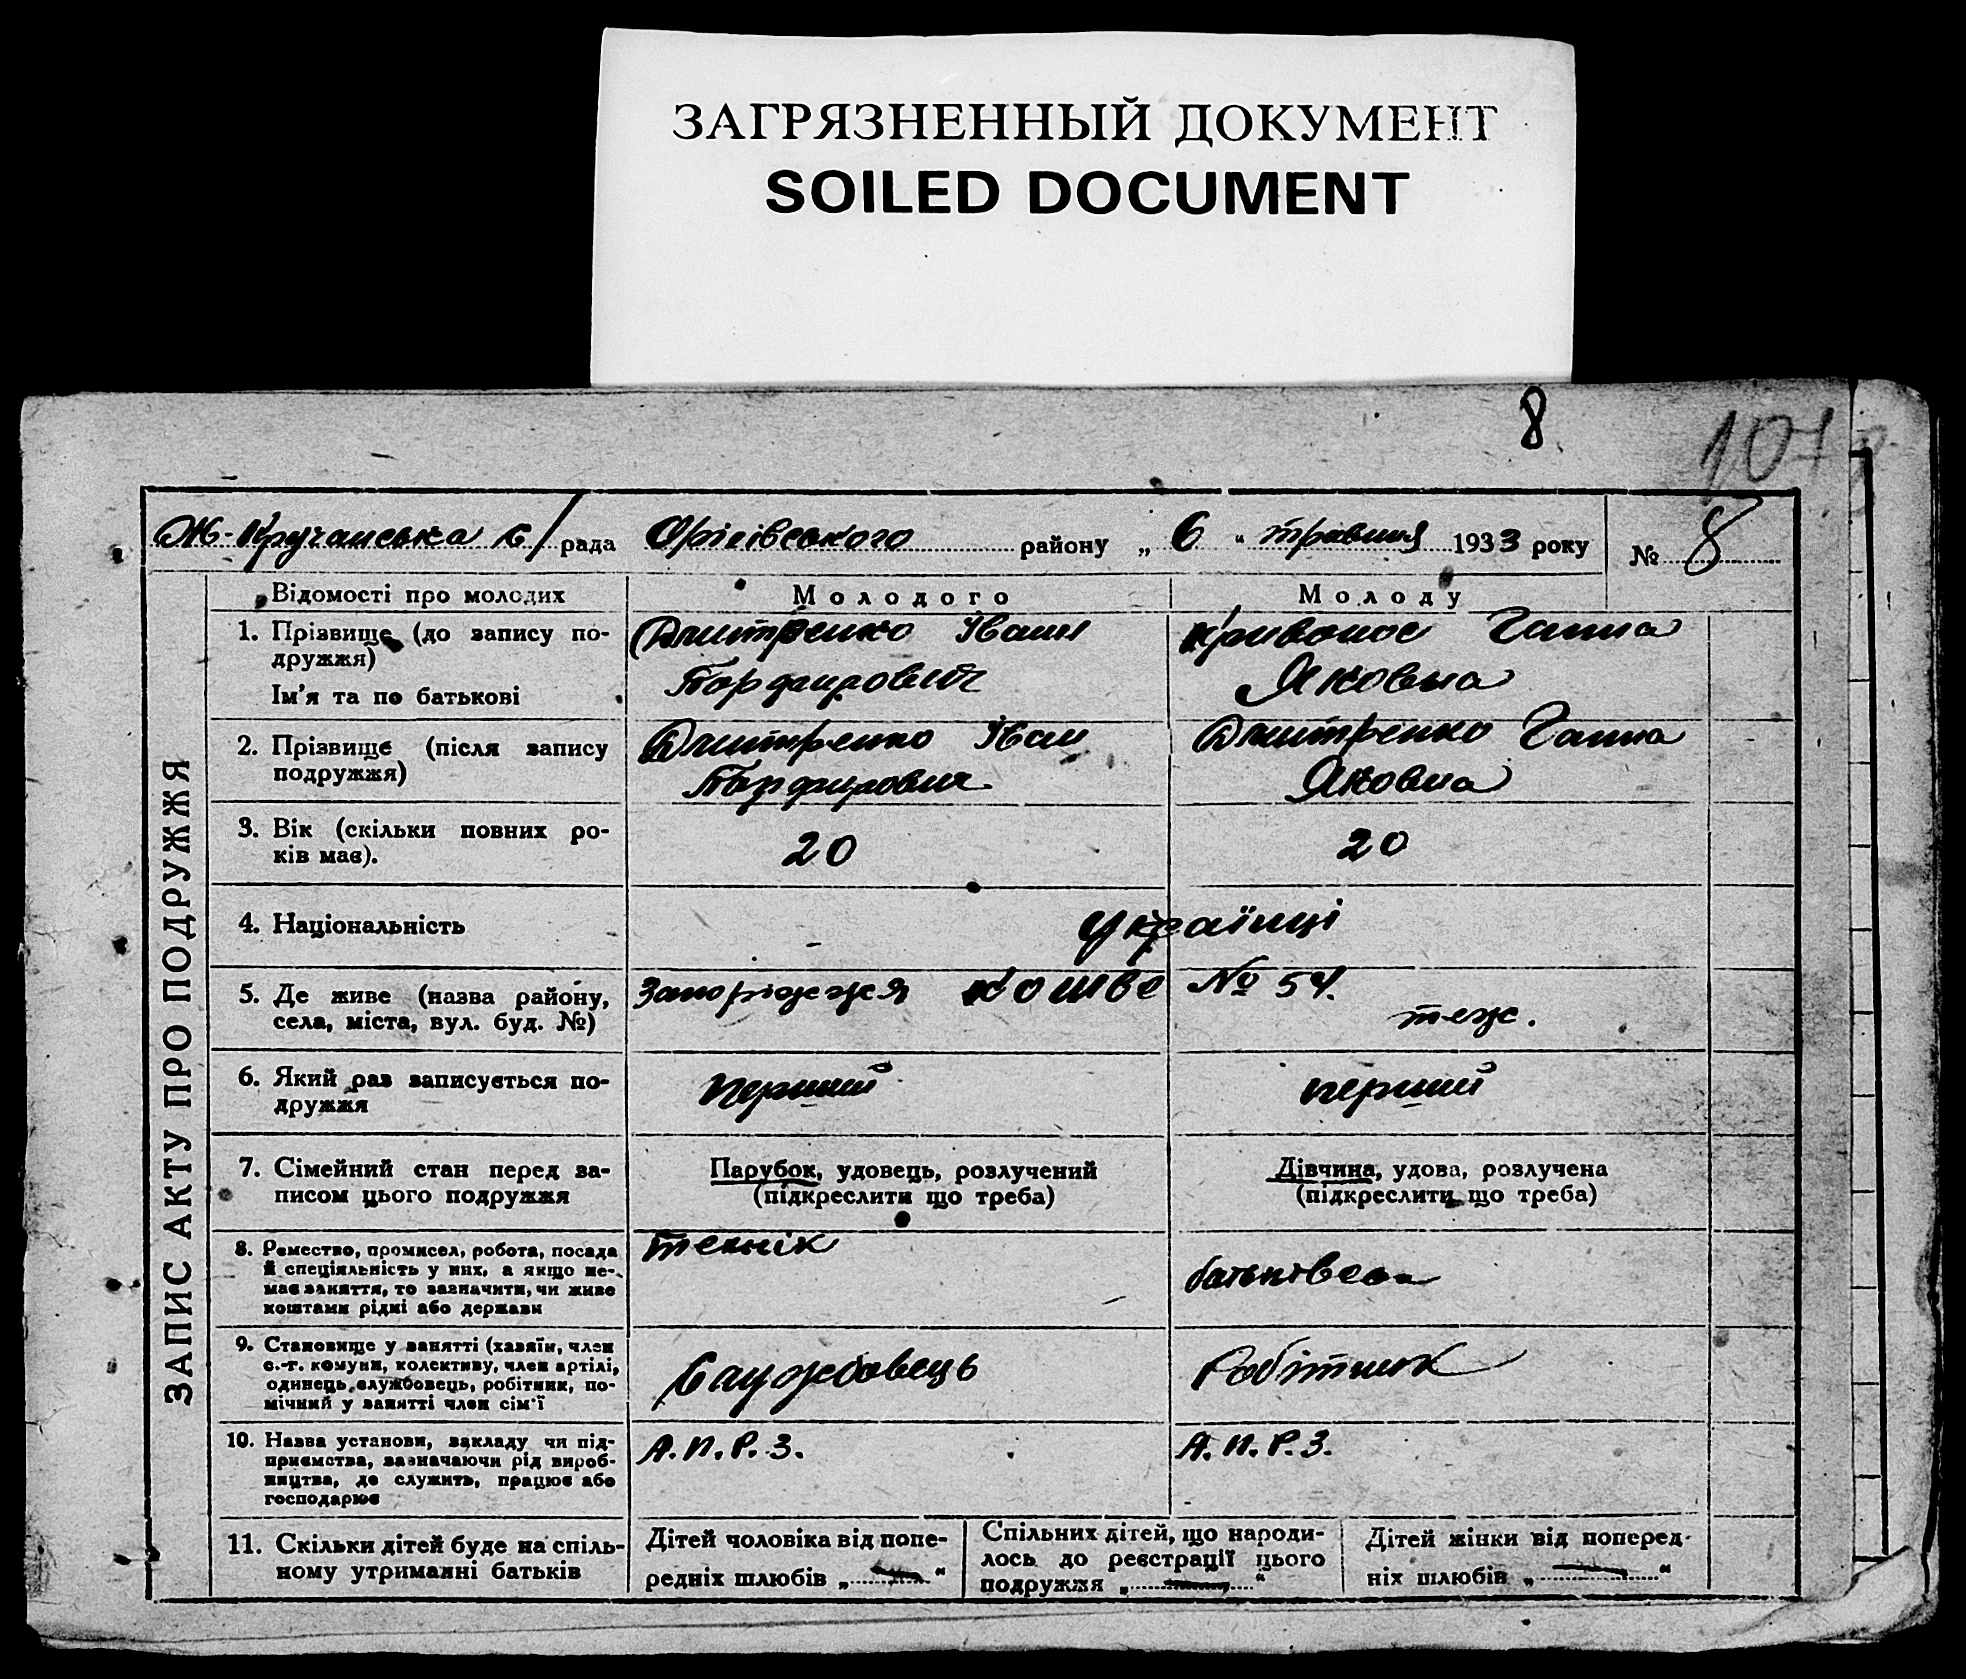 ЗАГРЯЗНЕННЫЙ ДОКУМЕНТ
SOILED DOCUMENT
8
107
Ж-Кручанська с/рада Оріхівського району „ 6 “ травня 1933 року № 8
ЗАПИС АКТУ ПРО ПОДРУЖЖЯ
Відомості про молодих Молодого Молоду
1. Прізвище (до запису по-
дружжя)
Ім'я та по батькові
Дмитренко Іван
Порфирович
Кривонос Ганна
Яковна
2. Прізвище (після запису
подружжя)
Дмитренко Іван
Порфирович
Дмитренко Ганна
Яковна
3. Вік (скільки повних ро-
ків має).
20 20
4. Національність
Українці
5. Де живе (назва району,
села, міста, вул. буд. №)
Запоріжжя № 54.
теж.
6. Який раз записується по-
дружжя
перший перший
7. Сімейний стан перед за-
писом цього подружжя
Парубок, удовець, розлучений
(підкреслити що треба)
Дівчина, удова, розлучена
(підкреслити що треба)
8. Ремество, промисел, робота, посада
й спеціяльність у них, а якщо не-
має заняття, то зазначити, чи живе
коштами рідні або держави
технік
9. Становище у занятті (хазяїн, член
с.-г. комуни, колективу, член артілі,
одинець, службовець, робітник, по-
мічний у занятті член сім'ї
Службовець Робітник
10. Назва установи, закладу чи під-
приємства, зазначаючи рід вироб-
ництва, де служить, працює або
господарює
А.П.Р.З. А.П.Р.З.
11. Скільки дітей буде на спіль-
ному утриманні батьків
Дітей чоловіка від попе-
редніх шлюбів „ “
Спільних дітей, що народи-
лось до реєстрації цього
подружжя „ “
Дітей жінки від поперед-
ніх шлюбів „ “